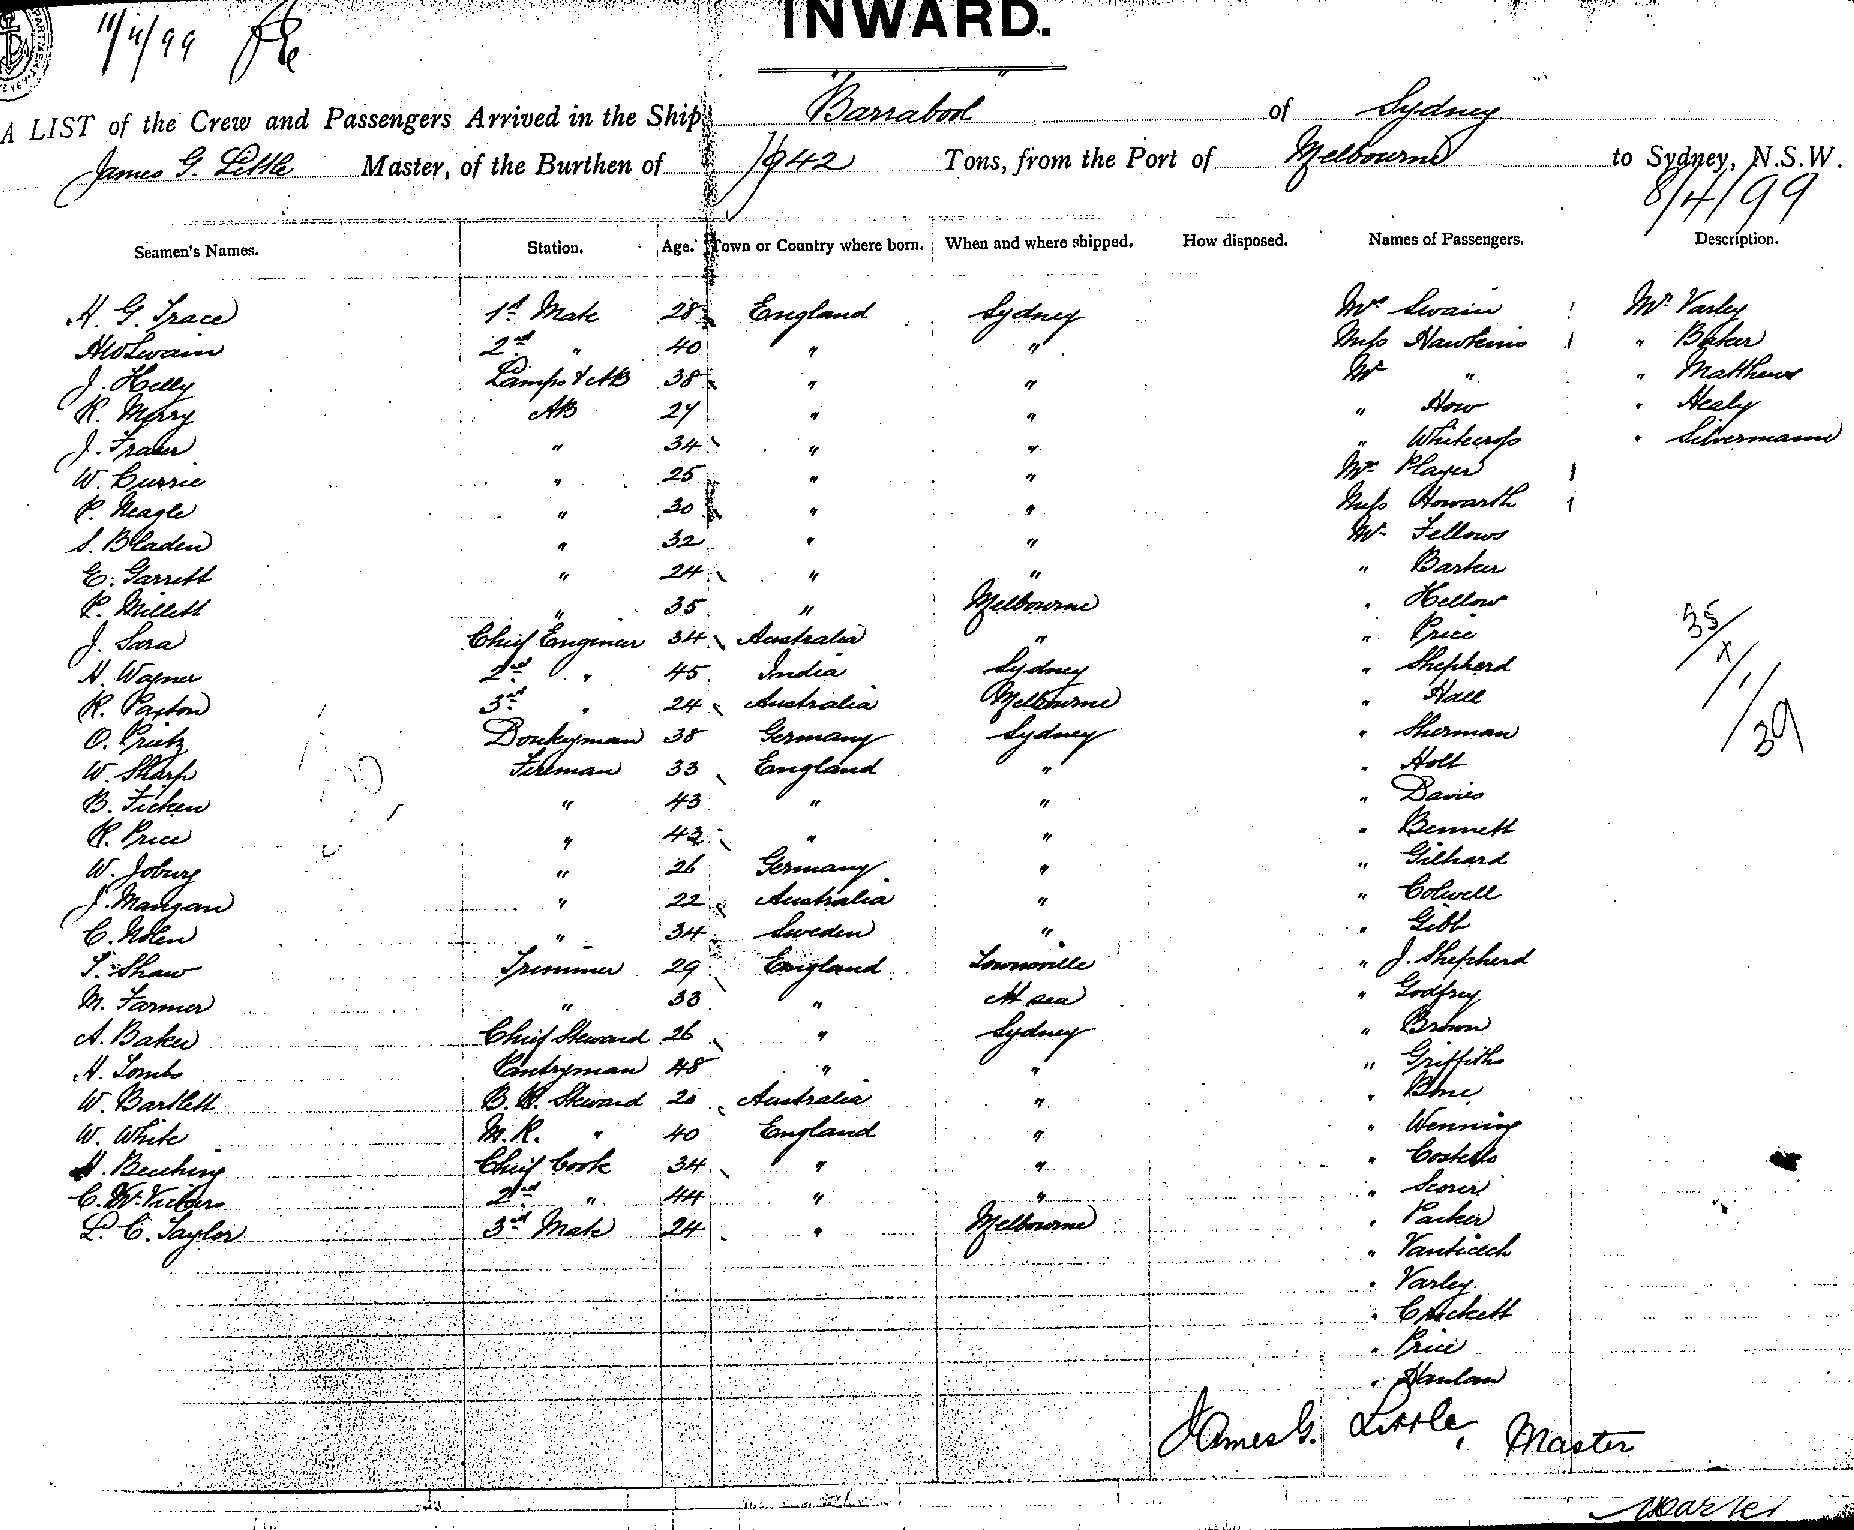 11/4/99
INWARD.
A LIST of the Crew and Passengers Arrived in the Ship "Barrabool" of Sydney
James G. Little Master, of the Burthen of 942 Tons, from the Port of Melbourne to Sydney, N.S.W.
8/4/99
Seamen's Names. Station. Age. Town or Country where born. When and where shipped. How disposed. Names of Passengers. Description.
H. G. Trace 1st Mate 28 England Sydney Mrs Swain 1 Mr Varley
H W Swain 2nd " 40 " " Miss Hawkins 1 " Baker
J. Helly Lamps & AB 38 " " Mr " " Matthews
R. Merry AB 27 " " " How " Healy
J. Fraser " 34 " " " Whitecross " Silvermann
W. Currie " 25 " " Mrs Player 1
P. Neagle " 30 " " Miss Howarth 1
S. Bladen " 32 " " Mr Fellows
E. Garrett " 24 " " " Barker
P. Millett " 35 " Melbourne " Hellow
J. Sara Chief Engineer 34 Australia " " Price
H. Wagner 2nd " 45 India Sydney " Shepherd
R. Paxton 3rd " 24 Australia Melbourne " Hall
O. Prietz Donkeyman 38 Germany Sydney " Sherman
W. Sharp Fireman 33 England " " Holt
B. Ficken " 43 " " " Davies
R. Price " 42 " " " Bennett
W. Joburg " 26 Germany " " Gilhard
J. Mangan " 22 Australia " " Colwell
C. Nolen " 34 Sweden " " Gibb
T. Shaw Trimmer 29 England Townsville " J. Shepherd
M. Farmer " 33 " At sea " Godfrey
A. Baker Chief Steward 26 " Sydney " Brown
H. Tombs Pantryman 48 " " " Griffiths
W. Bartlett B. R. Steward 20 Australia " " Bone
W. White M.R. " 40 England " " Wenning
H. Beeching Chief Cook 34 " " " Costello
C. McVickers 2nd " 44 " " " Scorer
L. C. Taylor 3rd Mate 24 " Melbourne " Packer
" Vanticech
" Varley
" Crickett
" Price
" Hanlan
35/x/1/39
James G. Little, Master